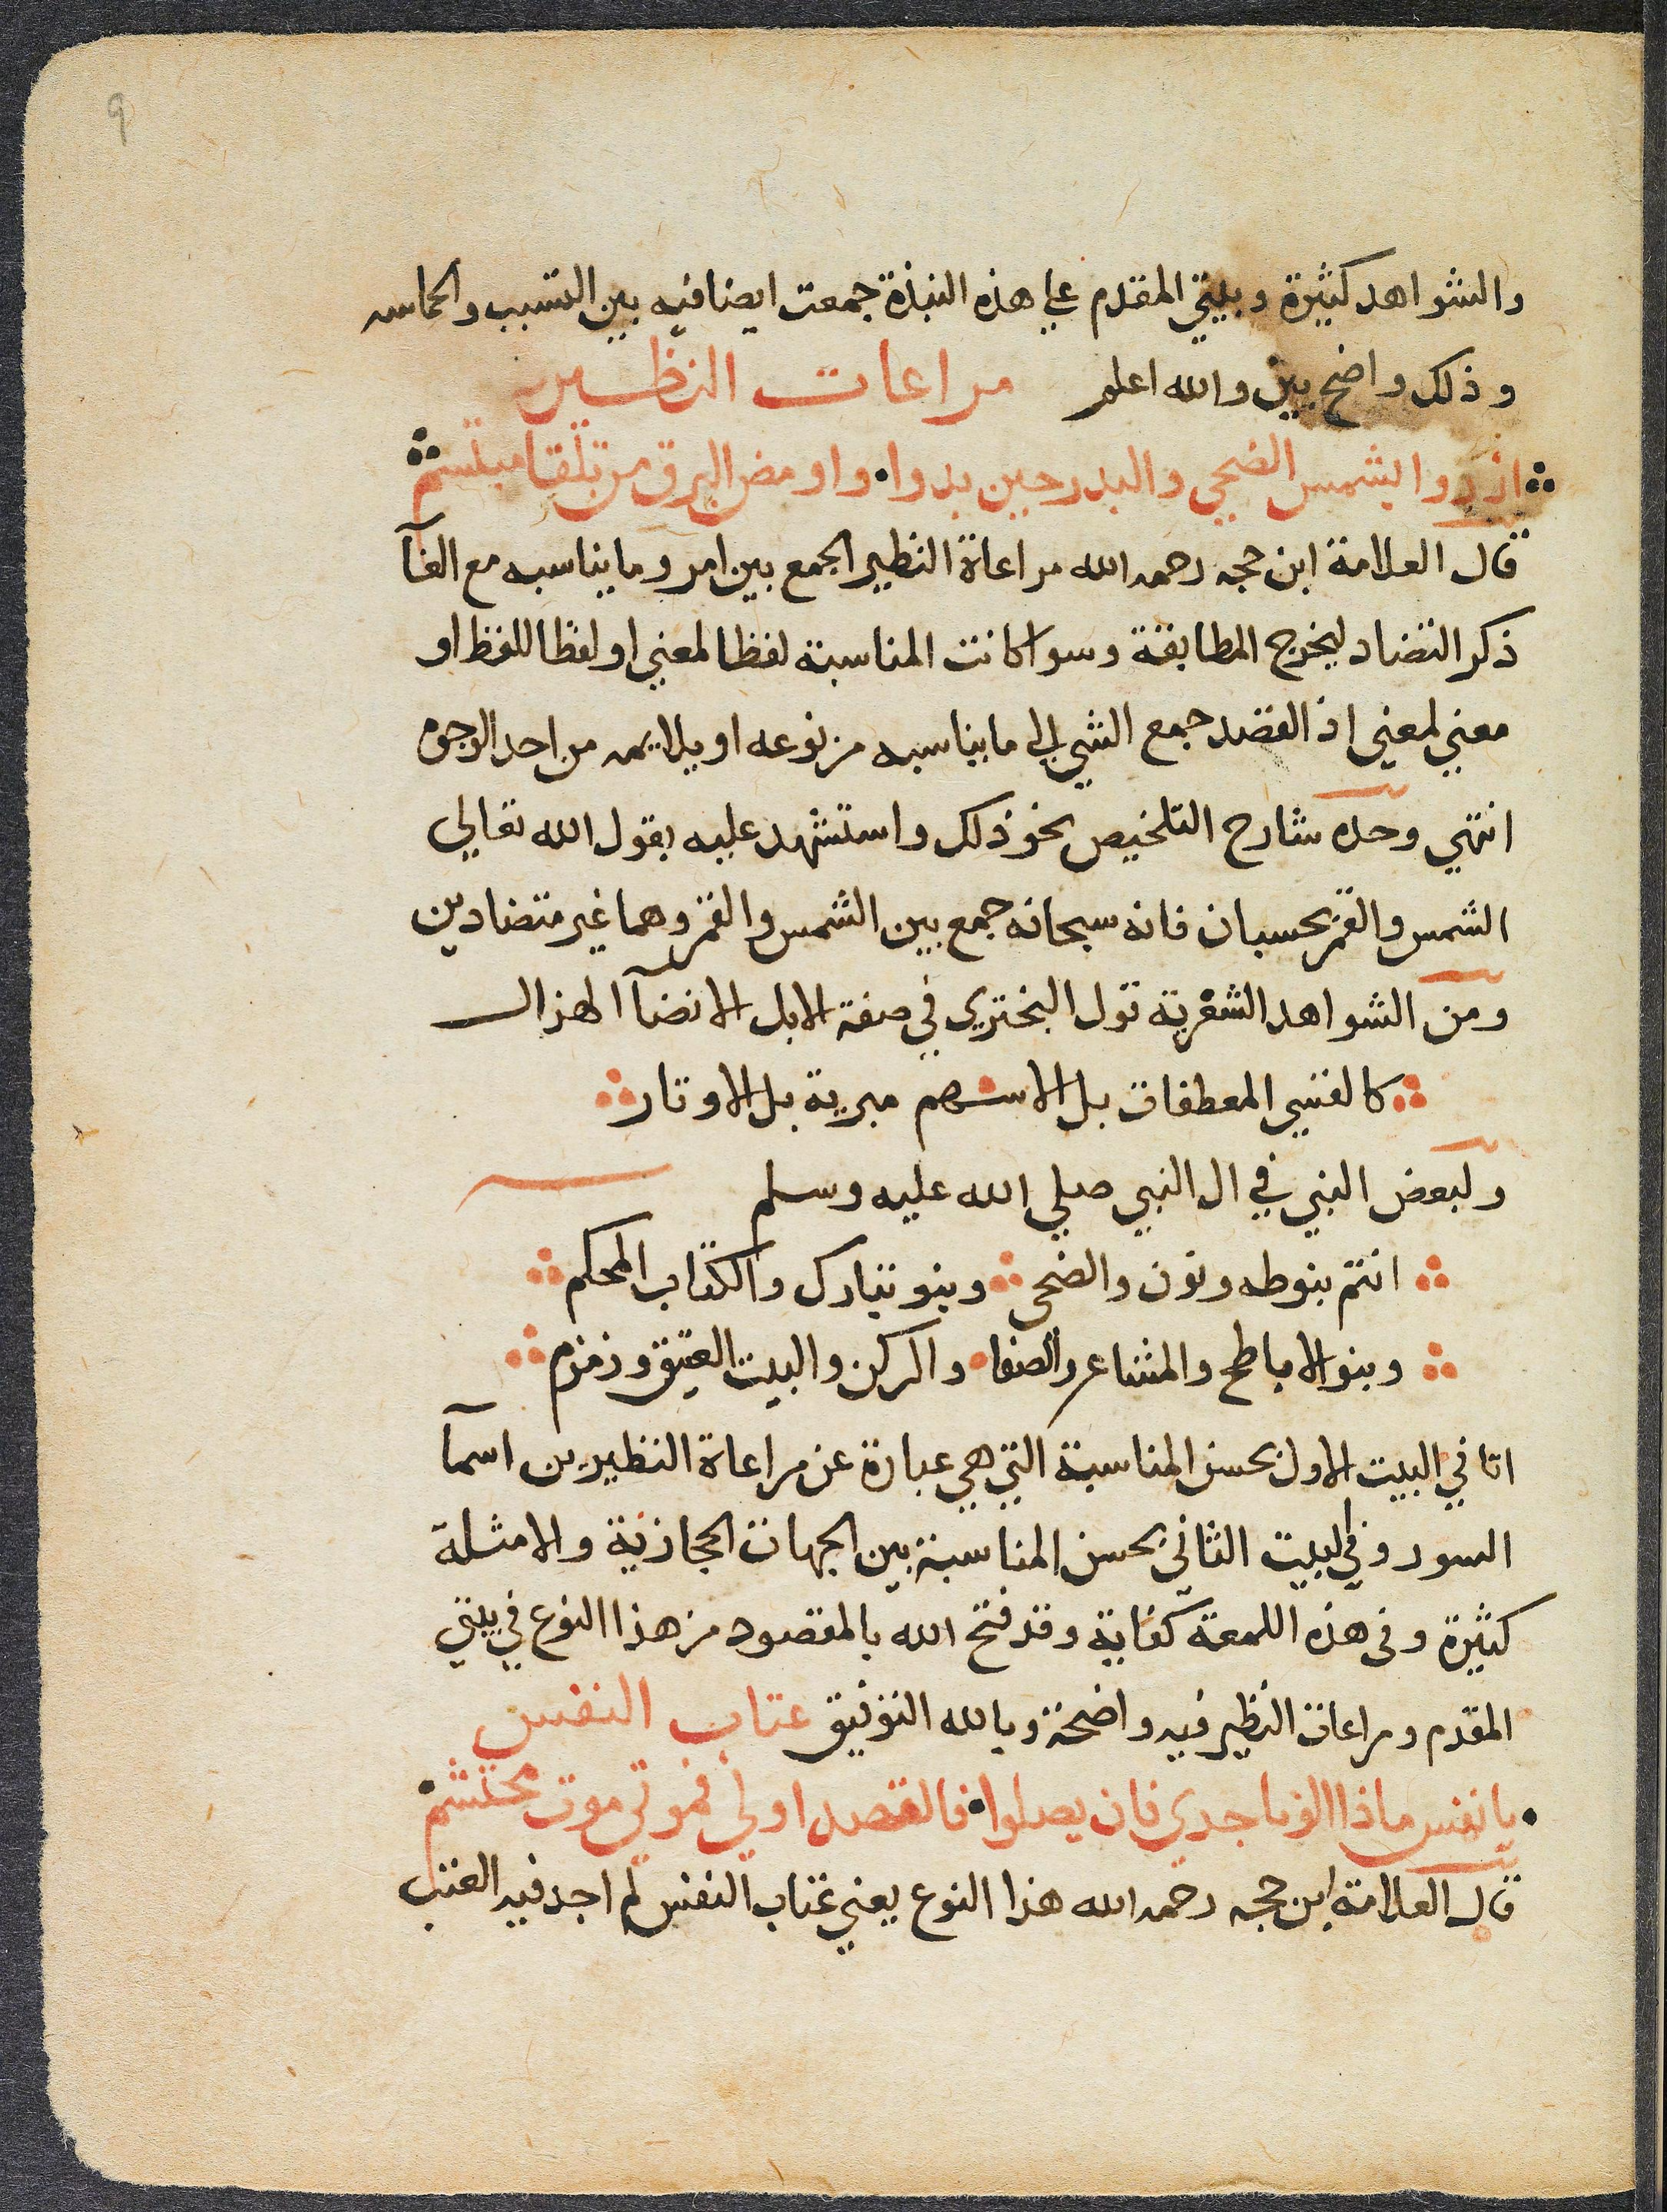 9
والشواهد كثيرة وبيتي المقدم علي هذه النبذة جمعت ايضا فيه بين التسبب والحماسه
وذلك واضح بين والله اعلم مراعات النظير
ازروا بشمس الضحي والبدر حين بدوا واومض البرق من تلقا مبتسم
قال العلامة ابن حجه رحمه الله مراعاة النظير الجمع بين امر وما يناسبه مع الغآ
ذكر التضاد ليخرج المطابقة وسوا كانت المناسبة لفظا لمعني او لفظا للفظ او
معني لمعني اذ القصد جمع الشي الي ما يناسبه من نوعه او يلايمه من احد الوجوه
انتهي وحده شارح التلخيص بنحو ذلك واستشهد عليه بقول الله تعالي
الشمس والقمر بحسبان فانه سبحانه جمع بين الشمس والقمر وهما غير متضادين
ومن الشواهد الشعرية قول البختري في صفة الابل الانضآ الهزال
كالقسي المعطفات بل الاسهم مبرية بل الاوتار
ولبعض في ال النبي صلي الله عليه وسلم
انتم بنو طه ونون والضحي وبنو تبارك والكتاب المحكم
وبنو الاباطح والمشاعر والصفا والركن والبيت العتيق وزمزم
اتا في البيت الاول بحسن المناسبة التي هي عبارة عن مراعاة النظير بين اسمآ
السور وفي البيت الثاني بحسن المناسبة بين الجهات الحجازية والامثلة
كثيرة وفي هذه اللمعة كفاية وقد فتح الله بالمقصود من هذا النوع في بيتي
المقدم ومراعات النظير فيه واضحة وبالله التوفيق عتاب النفس
يا نفس ماذا الونا جدي فان يصلوا فالقصد اولي فموتي موت محتشم
قال العلامة ابن حجه رحمه الله هذا النوع يعني عتاب النفس لم اجد فيه العتب